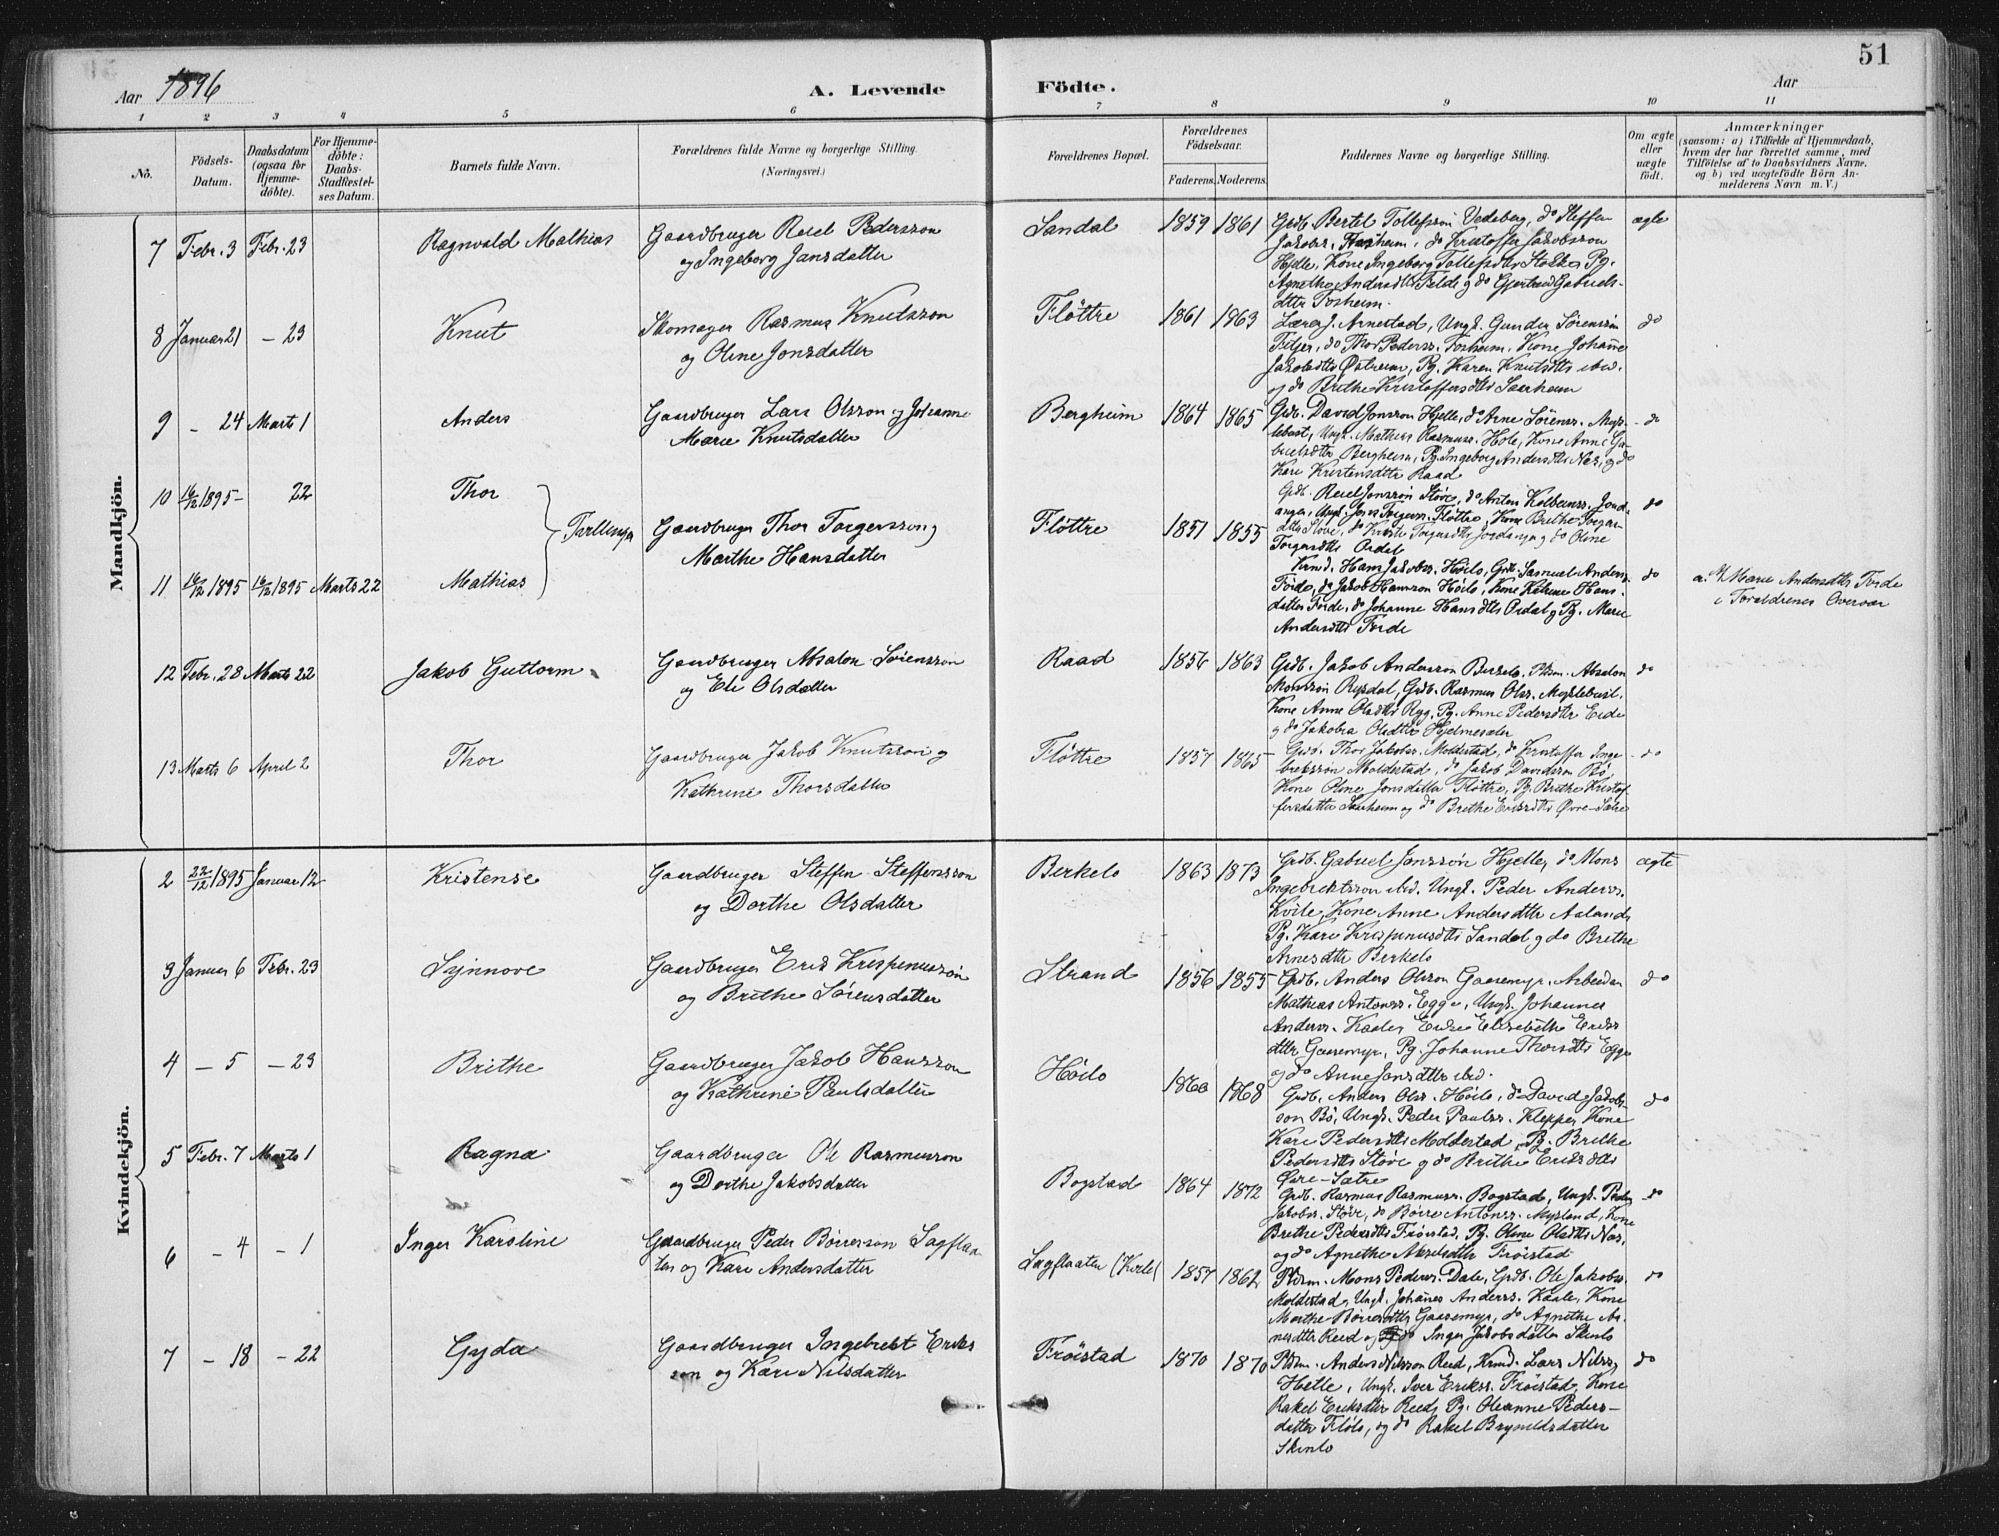 51
Aar 1896
A. Levende
Födte.
Aar
1 2 3 4 5 6 7 8 9 10 11
No.
Födsels-
Datum.
Daabsdatum
(ogsaa for
Hjemme-
döbte).
For Hjemme-
döbte:
Daabs-
Stadfæstel-
ses Datum.
Barnets fulde Navn.
Forældrenes fulde Navne og borgerlige Stilling.
(Næringsvei.)
Forældrenes Bopæl.
Forældrenes
Födselsaar.
Faderens. Moderens.
Faddernes Navne og borgerlige Stilling.
Om ægte
eller
uægte
födt.
Anmærkninger
(saasom: a) i Tilfælde af Hjemmedaab,
hvem der har forrettet samme, med
Tilföielse af to Daabsvidners Navne,
og b) ved uægtefödte Börn An-
melderens Navn m. V.)
Mandkjön.
7 Febr. 3 Febr. 23 Ragnvald Mathias
Gaardbruger Reiel Pedersson
og Ingeborg Jansdatter
Sandal 1859 1861
Grdb. Bertel Tollefssøn Vedeberg, do Steffen
Jakobss. Fosheim, do Kristoffer Jakobsson
Hjelle, Kone Ingeborg Tollefsdtr
Agnethe Andersdtr Felde og do Gjertrud Gabriels-
dtter Fosheim.
ægte
8 Januar 21 – 23 Knut
Skomager Rasmus Knutsson
og Oline Jonsdatter
Fløttre 1861 1863
Lærer J. Arnestad, Ungk. Gunder Sørenssøn
do Thor Pederss. Fosheim, Kone Johanne
Jakobsdtr Østreim, Pg. Karen Knutsdtr ibd.
og do Brithe Kristoffersdtr Saarheim
do
9 – 24 Marts 1 Anders
Gaardbruger Lars Olsson og Johanne
Marie Knutsdatter
Bergheim 1864 1865
Grdb. David Jonsson Hjelle, do Arne Sørenss. Myk-
lebust, Ungk. Mathias Rasmuss. Hole, Kone Anne Ga-
brielsdtr Bergheim, Pg. Ingeborg Andersdtr Nes, og do
Kari Kristensdtr Raad
do
10 16/12 1895 – 22 Thor
Tvillinger
Gaardbruger Thor Torgersson og
Marthe Hansdatter
Fløttre 1851 1855
Grdb. Reiel Jonssøn Støve, do Anton Kolbeinss. Jord-
anger, Ungk. Jons Torgerss. Fløttre, Kone Brithe Torger
dtter Støve, do Torgersdtr Jordanger og do Oline
Torgersdtr Ordal
do
11 16/12 1895 16/12 1895 Marts 22 Mathias
Hans Jakobss. Høilo, Grdb. Samuel Anderss.
Førde, do Jakob Hansson Høilo, Kone Katrine Hans-
datter Førde, do Johanne Hansdtr Ordal og Pg. Marie
Andersdtr Førde
do
a. Af Marie Andersdtr Førde
i Forældrenes Overvær
12 Febr. 28 Marts 22 Jakob Guttorm
Gaardbruger Absalon Sørensson
og Eli Olsdatter
Raad 1856 1863
Grdb. Jakob Anderssøn Birkelo, Pldsm. Absalon
Monssøn Rygdal, Grdb. Rasmus Olss. Myklebust,
Kone Anne Olsdtr Rygg, Pg. Anne Pedersdtr Eide
og do Jakobia Olsdtr Hjelmeseter
do
13 Marts 6 April 2 Thor
Gaardbruger Jakob Knutsson og
Kathrine Thorsdatter
Fløttre 1857 1865
Grdb. Thor Jakobss. Moldestad, do Kristoffer Inge-
brektssøn Moldestad, do Jakob Davidsson Bø,
Kone Oline Jonsdatter Fløttre, Pg. Brithe Kristof
fersdatter Saarheim og do Brithe Eriksdtr Øvre-Sætre
do
Kvindekjön.
2 22/12 1895 Januar 12 Kristense
Gaardbruger Steffen Steffensson
og Dorthe Olsdatter
Birkelo 1863 1873
Grdb. Gabriel Jonssøn Hjelle, do Mons
Ingebrektsson ibid. Ungk. Peder Anderss.
Kvile, Kone Anne Andersdtr Aaland,
Pg. Kari Krispinusdtr Sandal og do Brithe
Arnesdtr Birkelo
ægte
3 Januar 6 Febr. 23 Synnove
Gaardbruger Erik Krispinussøn
og Brithe Sørensdatter
Strand 1856 1855
Grdb. Anders Olsson Gaasemyr, Arbeidsm
Mathias Antonss. Egge, Ungk. Johannes
Anderss. Kaale, Enke Elisabethe Eriks
dtter Gaasemyr, Pg. Johanne Thorsdtr Egge
og do Anne Jonsdtr ibid.
do
4 – 5 – 23 Brithe
Gaardbruger Jakob Hansson
og Kathrine Paulsdatter
Høilo 1860 1868
Grdb. Anders Olss. Høilo, do David Jakobs-
son Bø, Ungk. Peder Paulss. Klepper, Kone
Kari Pedersdtr Moldestad, Pg. Brithe
Pedersdtr Støve og do Brithe Eriksdtr
Øvre-Sætre
do
5 Febr. 7 Marts 1 Ragna
Gaardbruger Ole Rasmusson
og Dorthe Jakobsdatter
Bogstad 1864 1872
Grdb. Rasmus Rasmuss. Bogstad, Ungk. Peder
Jakobss. Støve, do Børre Antonss. Mykland, Kone
Brithe Pedersdtr Frøistad, Pg. Oline Olsdtr Nos,
og do Agnethe Akselsdtr Frøistad
do
6 – 4 – 1 Inger Karoline
Gaardbruger Peder Børresson Sagflaa
ten og Kari Andersdatter
Sagflaaten (Kvile) 1857 1862
Pldsm. Mons Pederss. Dale, Grdb. Ole Jakobss.
Moldestad, Ungk. Johanes Anderss. Kaale, Kone
Marthe Børresdtr Gaasemyr, do Agnethe Ar-
nesdtr Reed og do Inger Jakobsdatter Skinlo
do
7 – 18 – 22 Gyda
Gaardbruger Ingebrekt Eriks
son og Kari Nilsdatter
Frøistad 1870 1870
Pldsm. Anders Nilsson Reed, Krmd. Lars Nilss.
Hetle, Ungk. Iver Erikss. Frøistad, Kone
Rakel Eriksdtr Reed, Pg. Oleanne Peders-
datter Fløtre, og do Rakel Brynildsdatter
Skinlo
do